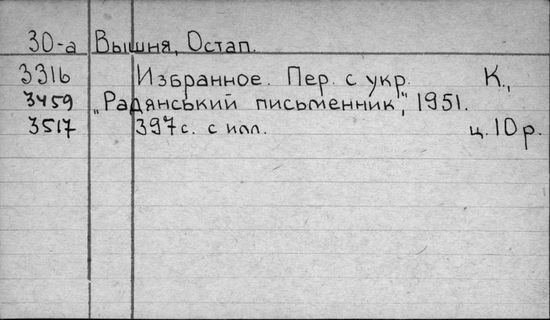 30-а Вышня, Остап.
3316 Избранное. Пер. с укр. К.,
3459 „Радянський письменник", 1951.
3517 397 с. с илл. ц. 10 р.